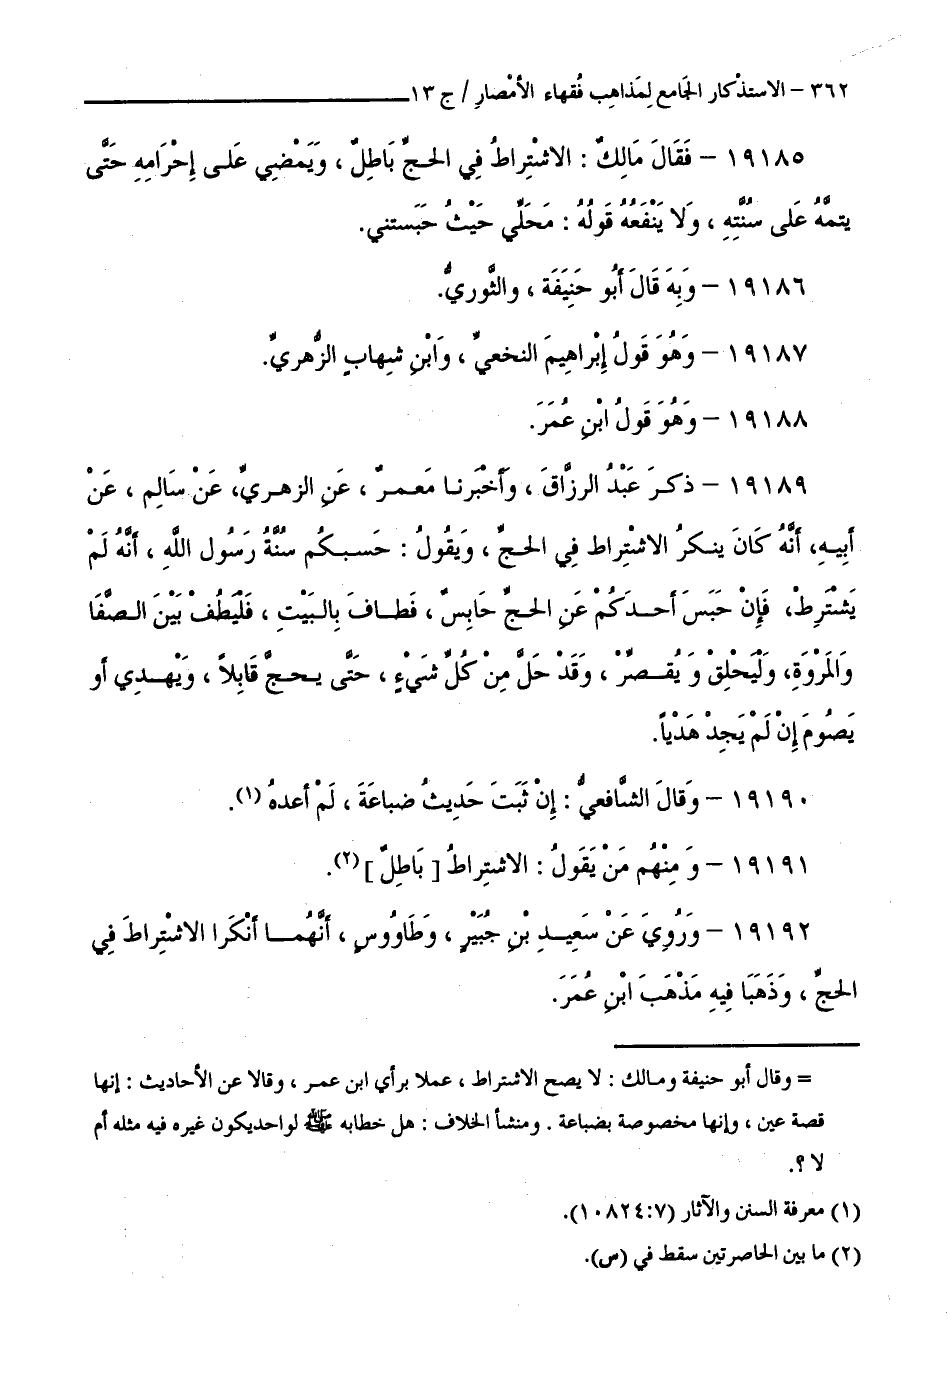 ٣٦٢ – الاستذْكار الجَامع لِمَذاهِب فُقهاء الأمْصارِ / ج ١٣
١٩١٨٥ – فَقَالَ مَالِكٌ : الاشْتِراطُ فِي الحجِّ بَاطِلٌ ، وَيَمْضِي عَلَى إِحْرَامِهِ حَتَّى
يتمَّهُ عَلى سُنَّتِهِ ، وَلا يَنْفَعُهُ قَولُهُ : مَحَلِّي حَيْثُ حَبَستني.
١٩١٨٦ – وَبِهَ قَالَ أَبُو حَنِيَفَة ، والثَّوريُّ.
١٩١٨٧ – وَهُوَ قَولُ إِبْراهِيمَ النخعيِّ ، وَابْنِ شِهابٍ الزُّهريِّ.
١٩١٨٨ – وَهُوَ قَولُ ابْنِ عُمَرَ.
١٩١٨٩ – ذكرَ عَبْدُ الرزَّاقَ ، وَأَخْبَرنا مَعمرٌ ، عَنِ الزهريِّ، عَنْ سَالِمٍ ، عَنْ
أَبِيهِ، أَنَّهُ كَانَ ينكرُ الاشْتِراط فِي الحجِّ ، وَيَقُولُ : حَسبكُم سُنَّةُ رَسُول اللَّهِ ، أَنَّهُ لَمْ
يَشْتَرِطْ، فَإِنْ حَبَسَ أَحدَكُمْ عَنِ الحجِّ حَابِسٌ ، فَطافَ بِالبَيْتِ ، فَلْيَطُفْ بَيْنَ الصَّفَا
وَالمَرْوَةِ، وَلْيَحْلِقْ وَ يُقصرْ ، وَقَدْ حَلَّ مِنْ كُلِّ شَيْءٍ ، حَتَّى يحجَّ قَابِلاً ، وَيْهدِي أو
يَصُومَ إِنْ لَمْ يَجِدْ هَدْياً.
١٩١٩٠ – وَقالَ الشَّافعيُّ : إِنْ ثَبَتَ حَدِيثُ ضباعَةَ ، لَمْ أعدهُ (١).
١٩١٩١ – وَ مِنْهُم مَنْ يَقَولُ : الاشتِراطُ [ بَاطِلٌ ] (٢).
١٩١٩٢ – وَرُوِيَ عَنْ سَعِيدِ بْنِ جُبَيْرٍ ، وَطَاوُوسٍ ، أَنَّهُما أَنْكَرا الاشْتِراطَ فِي
الحجِّ ، وَذَهَبَا فِيهِ مَذْهَبَ ابْنِ عُمَرَ.
= وقال أبو حنيفة ومالك : لا يصح الاشتراط ، عملا برأي ابن عمر ، وقالا عن الأحاديث : إنها
قصة عين ، وإنها مخصوصة بضباعة . ومنشأ الخلاف : هل خطابه ﷺ لواحديكون غيره فيه مثله أم
لا ؟.
(١) معرفة السنن والآثار (٧:١٠٨٢٤).
(٢) ما بين الحاصرتين سقط في (س).